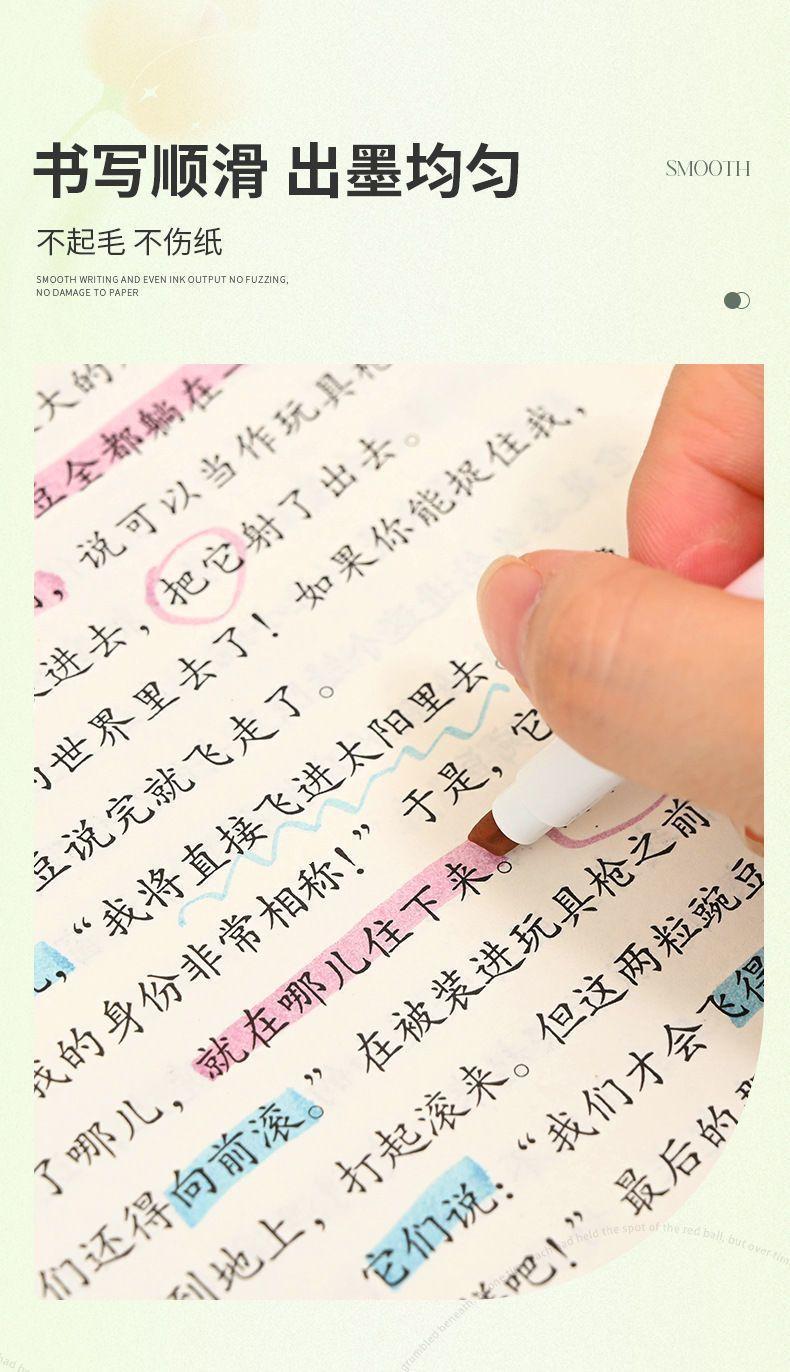 书写顺滑 出墨均匀
SMOOTH
不起毛 不伤纸
SMOOTH WRITING AND EVEN INK OUTPUT NO FUZZING,
NO DAMAGE TO PAPER
大的
豆全都躺在一
，说可以当作玩具枪
把它射了出去。
进去，
如果你能捉住我，
的世界里去了！
豆说完就飞走了。
“我将直接飞进太阳里去。
我的身份非常相称！”于是，它
了哪儿，就在哪儿住下来。
们还得向前滚。”在被装进玩具枪之前
到地上，打起滚来。但这两粒豌豆
它们说：“我们才会飞得
吧！”最后的
had held the spot of the red ball, but over tim
grumbled beneath